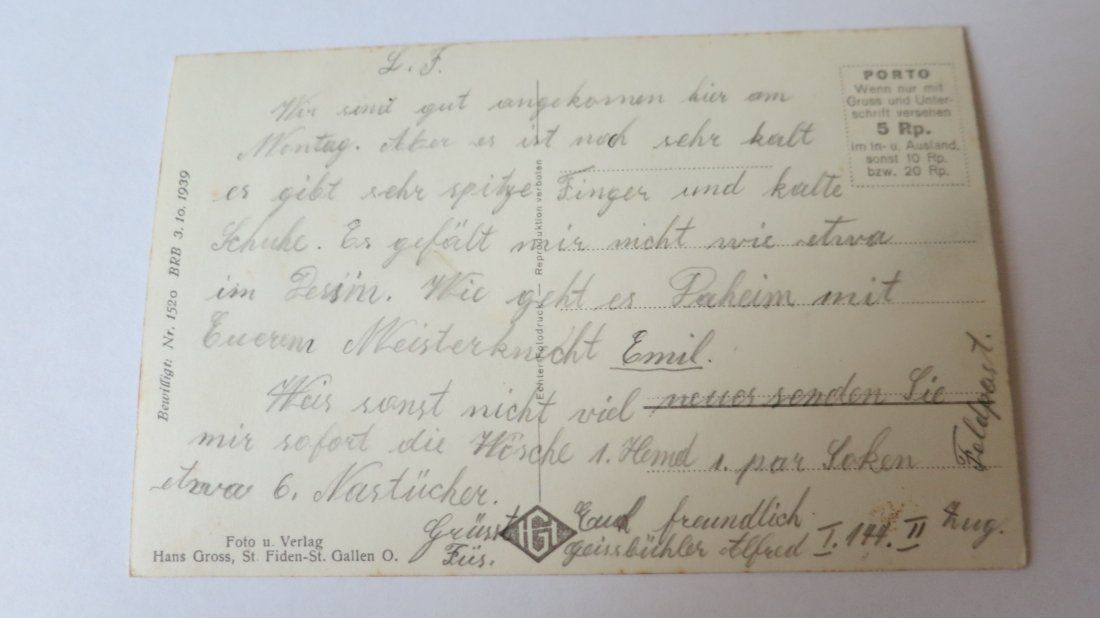 L. F.
Wir sind gut angekomen hier am
Montag. Aber es ist noch sehr kalt
es gibt sehr spitze Finger und kalte
Schuhe. Es gefält mir nicht wie etwa
im Dessin. Wie geht es Daheim mit
Euerem Meisterknecht Emil.
Weis sonst nicht viel neues senden Sie
mir sofort die Wösche 1. Hemd 1. par Soken
etwa 6. Nastücher.
Grüsst Euch freundlich
Füs. Geissbühler Alfred I. 144. II Zug.
Feldpost.
PORTO
Wenn nur mit
Gruss und Unter-
schrift versehen
5 Rp.
im In- u. Ausland,
sonst 10 Rp.
bzw. 20 Rp.
Bewilligt: Nr. 1520 BRB 3. 10. 1939
Echter Fotodruck — Reproduktion verboten
HGt
Foto u. Verlag
Hans Gross, St. Fiden-St. Gallen O.